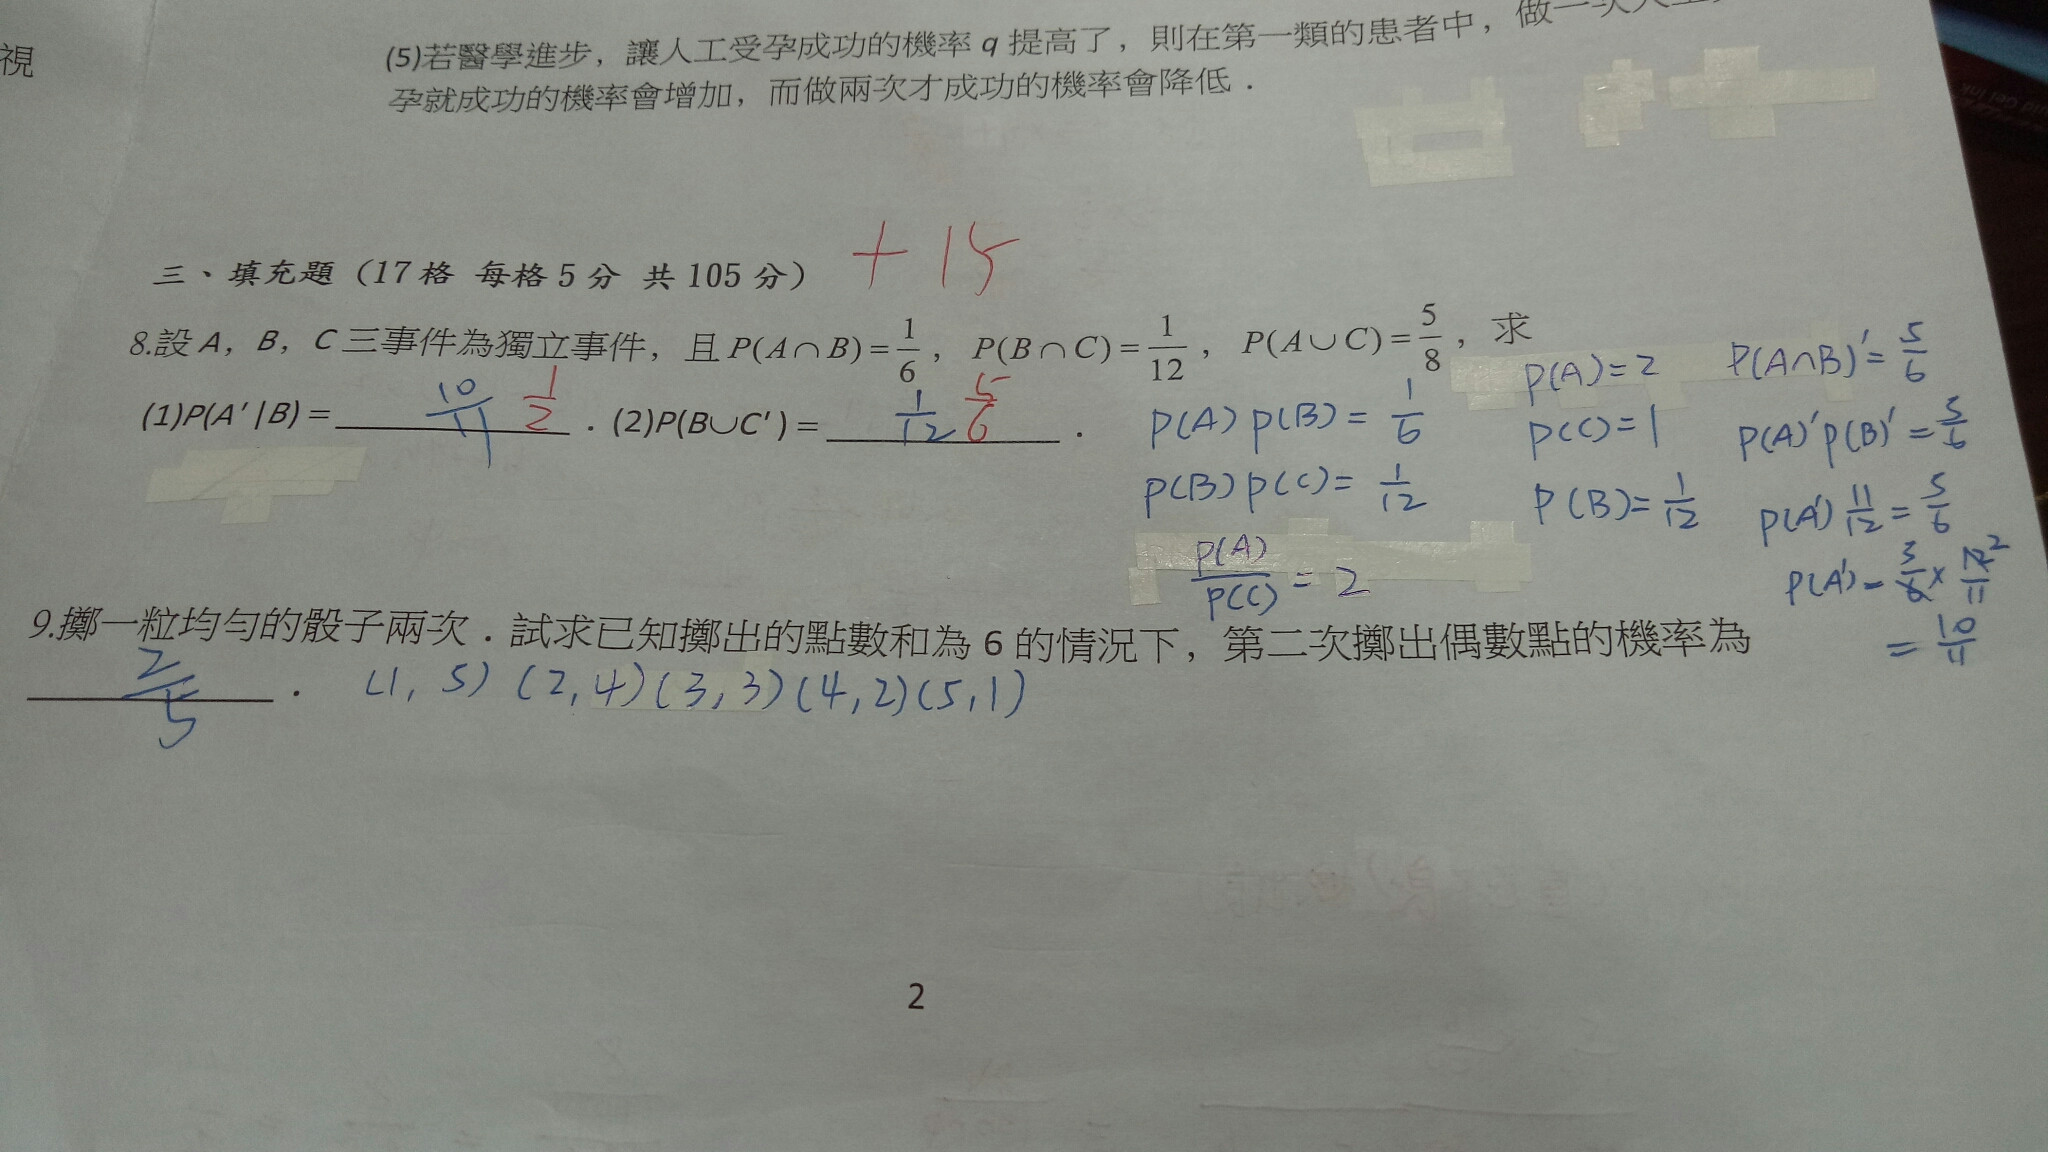 視
(5)若醫學進步，讓人工受孕成功的機率 q 提高了，則在第一類的患者中，做一次人工
孕就成功的機率會增加，而做兩次才成功的機率會降低．
三、填充題（17格 每格5分 共105分） +15
8.設A，B，C三事件為獨立事件，且P(A∩B)=1/6，P(B∩C)=1/12，P(A∪C)=5/8，求
(1)P(A'|B)= 10/11 1/2 ．(2)P(B∪C')= 1/12 5/6 ．
P(A)P(B)=1/6
P(B)P(C)=1/12
P(A)/P(C)=2
P(A)=2
P(C)=1
P(B)=1/12
P(A∩B)'=5/6
P(A)'P(B)'=5/6
P(A')11/12=5/6
P(A')=5/6×12/11 2
=10/11
9.擲一粒均勻的骰子兩次．試求已知擲出的點數和為6的情況下，第二次擲出偶數點的機率為
2/5 ． (1,5)(2,4)(3,3)(4,2)(5,1)
2